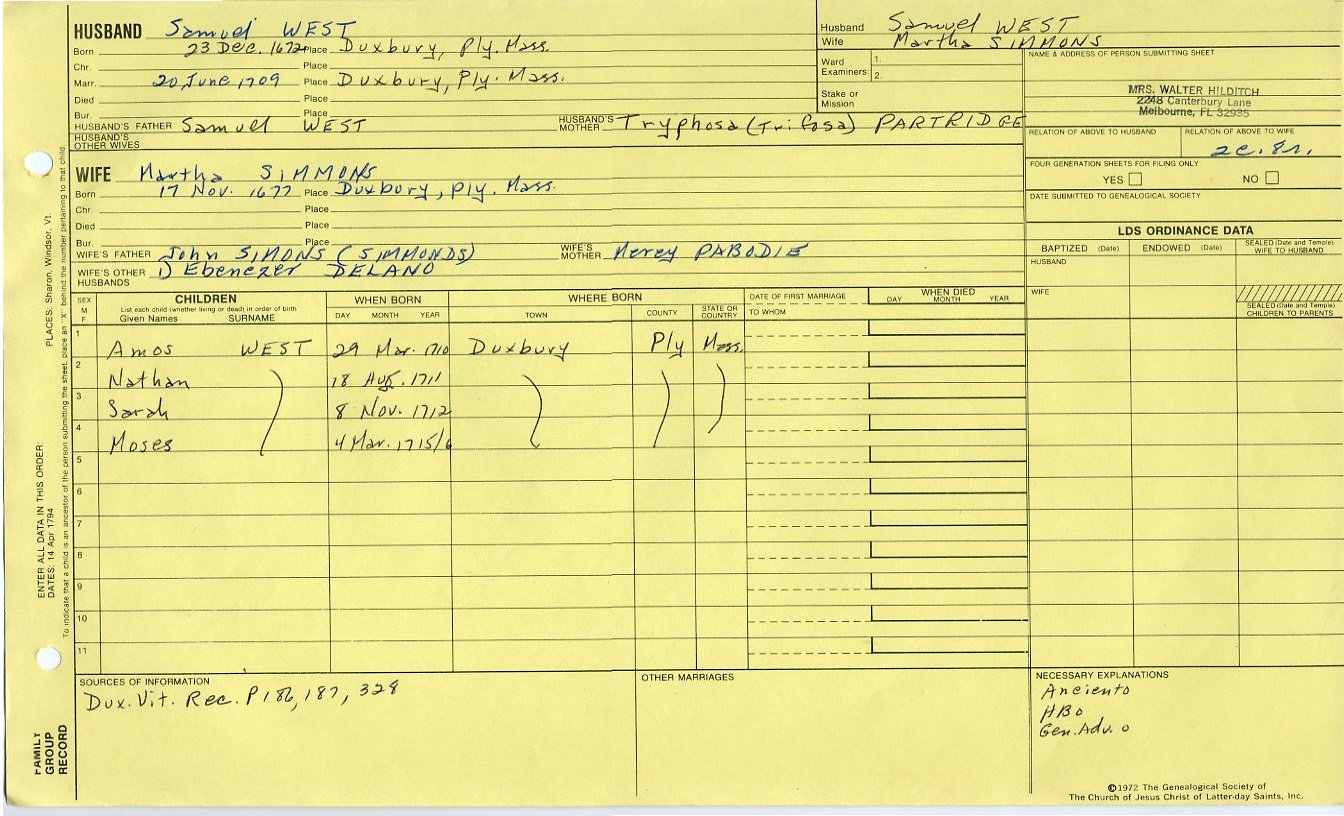 HUSBAND Samuel WEST
Born 23 Dec. 1672 Place Duxbury, Ply. Mass.
Chr. Place
Marr. 20 June, 1709 Place Duxbury, Ply. Mass.
Died Place
Bur. Place
HUSBAND'S FATHER Samuel WEST HUSBAND'S MOTHER Tryphosa (Trifosa) PARTRIDGE
HUSBAND'S OTHER WIVES
WIFE Martha SIMMONS
Born 17 Nov. 1677 Place Duxbury, Ply. Mass.
Chr. Place
Died Place
Bur. Place
WIFE'S FATHER John SIMONS (SIMMONDS) WIFE'S MOTHER Mercy PABODIE
WIFE'S OTHER HUSBANDS 1) Ebenezer DELANO
Husband Samuel WEST
Wife Martha SIMMONS
Ward Examiners 1.
2.
Stake or Mission
NAME & ADDRESS OF PERSON SUBMITTING SHEET
MRS. WALTER HILDITCH
2248 Canterbury Lane
Melbourne, FL 32935
RELATION OF ABOVE TO HUSBAND RELATION OF ABOVE TO WIFE
2c. 8r.
FOUR GENERATION SHEETS FOR FILING ONLY
YES NO
DATE SUBMITTED TO GENEALOGICAL SOCIETY
LDS ORDINANCE DATA
BAPTIZED (Date) ENDOWED (Date) SEALED (Date and Temple) WIFE TO HUSBAND
HUSBAND
WIFE
SEALED (Date and Temple) CHILDREN TO PARENTS
SEX M F
CHILDREN
List each child (whether living or dead) in order of birth
Given Names SURNAME
WHEN BORN
DAY MONTH YEAR
WHERE BORN
TOWN COUNTY STATE OR COUNTRY
DATE OF FIRST MARRIAGE
TO WHOM
WHEN DIED
DAY MONTH YEAR
1 Amos WEST 29 Mar. 1710 Duxbury Ply Mass.
2 Nathan 18 Aug. 1711
3 Sarah 8 Nov. 1712
4 Moses 4 Mar. 1715/6
5
6
7
8
9
10
11
SOURCES OF INFORMATION
Dux. Vit. Rec. P 186, 187, 328
OTHER MARRIAGES
NECESSARY EXPLANATIONS
Anciento
HBo
Gen. Adv. o
©1972 The Genealogical Society of
The Church of Jesus Christ of Latter-day Saints, Inc.
PLACES: Sharon, Windsor, Vt.
To indicate that a child is an ancestor of the person submitting the sheet, place an "X" behind the number pertaining to that child.
ENTER ALL DATA IN THIS ORDER:
DATES: 14 Apr 1794
FAMILY
GROUP
RECORD